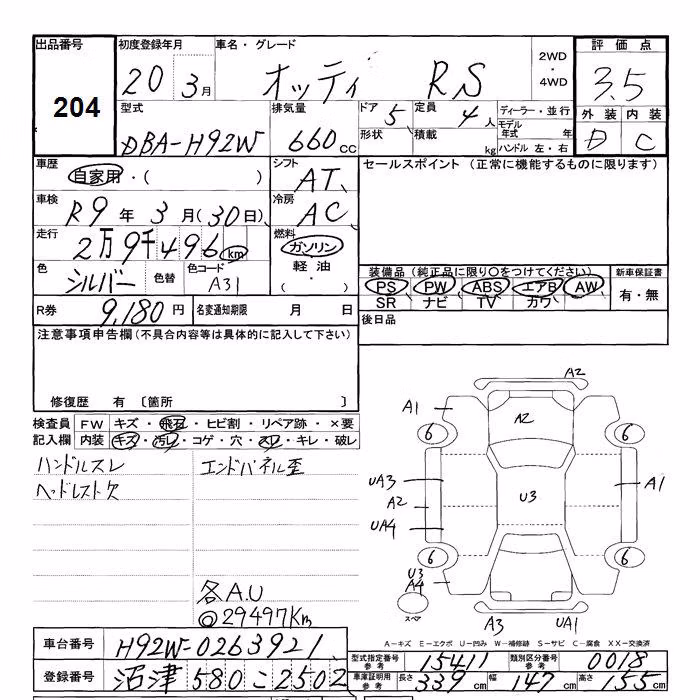 出品番号 初度登録年月 車名・グレード 評価点
204
20 3月 オッティ RS 2WD・4WD 3.5
型式 排気量 ドア 5 定員 4人 ディーラー・並行 外装 内装
DBA-H92W 660cc 形状 積載 kg モデル年式 年 D C
ハンドル 左・右
車歴 自家用・( ) シフト AT セールスポイント (正常に機能するものに限ります)
車検 R9年3月(30日) 冷房 AC
走行 2万9千496km 燃料 ガソリン
軽油
( ・ )
色 シルバー 色替 色コード A31
装備品(純正品に限り○をつけてください) 新車保証書
PS PW ABS エアB AW 有・無
SR ナビ TV カワ
R券 9,180円 名変通知期限 月 日 後日品
注意事項申告欄(不具合内容等は具体的に記入して下さい)
修復歴 有 〔箇所 〕
検査員 FW キズ・飛石・ヒビ割・リペア跡・×要
記入欄 内装 キズ・汚レ・コゲ・穴・スレ・キレ・破レ
ハンドルスレ エンドパネル歪
ヘッドレスト欠
各A.U
◎29497Km
A2
A1 A2
6 6
UA3 U3 A1
A2
UA4
6 6
U3
A4
スペア A3 UA1
A-キズ E-エクボ U-凹み W-補修跡 S-サビ C-腐食 XX-交換済
車台番号 H92W-0263921 型式指定番号 参考 15411 類別区分番号 参考 0018
登録番号 沼津 580 こ 2502 車庫証明 参考 長さ 339cm 幅 147cm 高さ 155cm